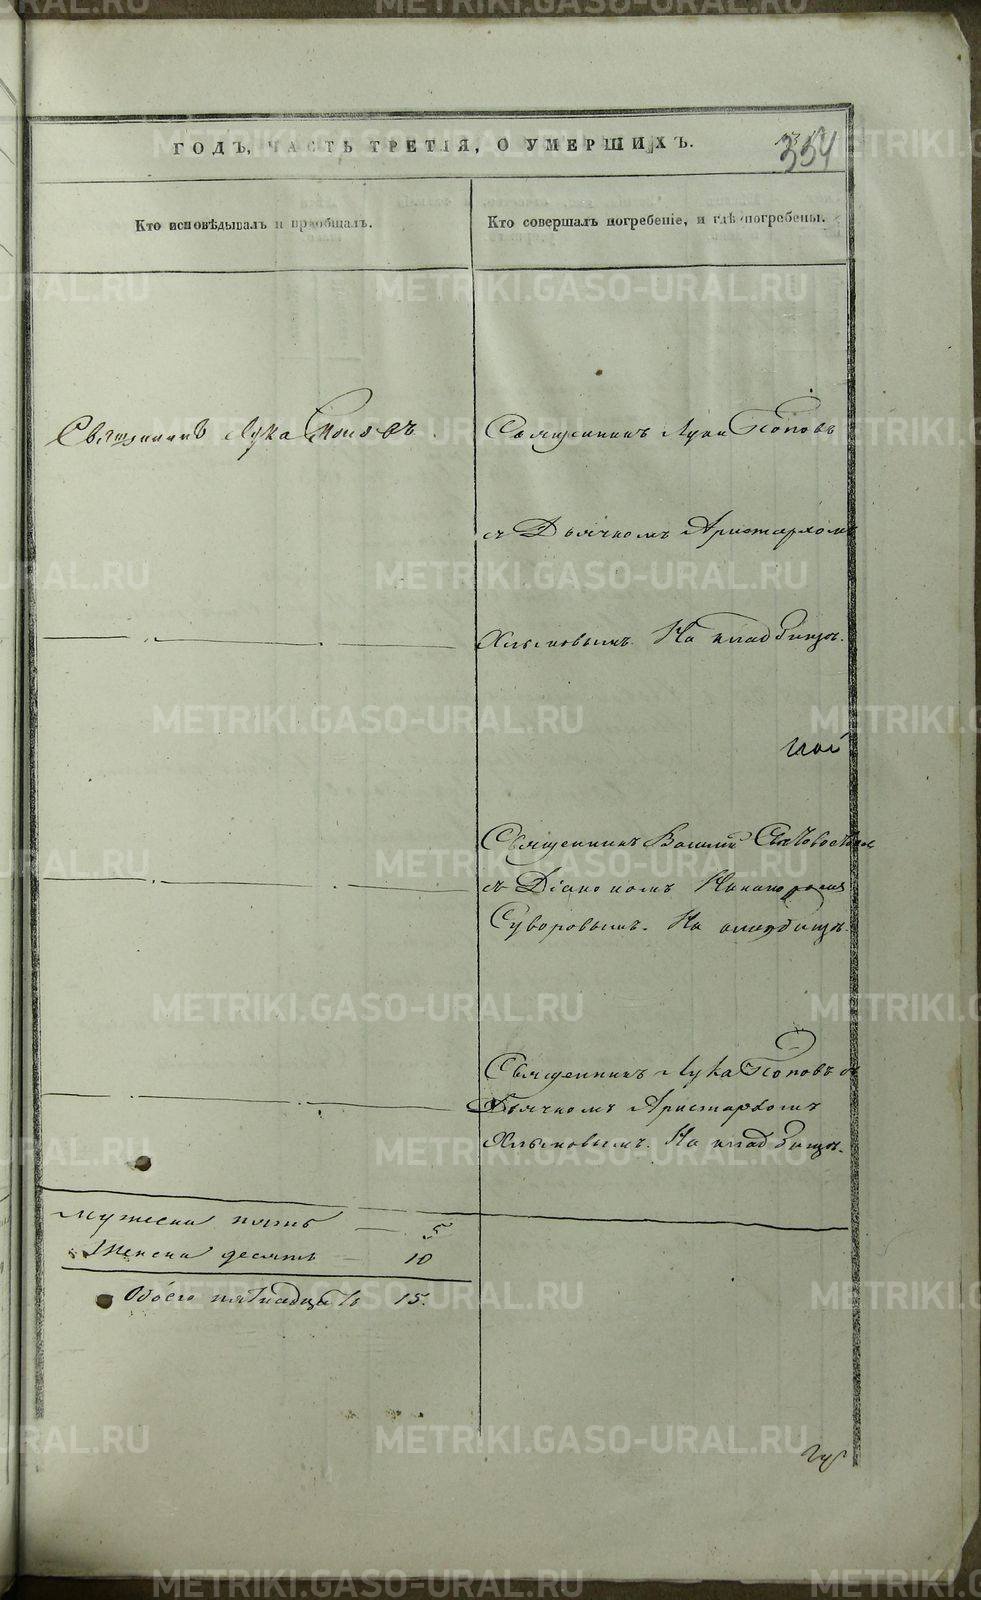 ГОДЪ, ЧАСТЬ ТРЕТІЯ, О УМЕРШИХЪ.
354
Кто исповѣдывалъ и пріобщалъ.
Кто совершалъ погребеніе, и гдѣ погребены.
Священникъ Лука Поповъ
Священникъ Лука Поповъ
съ Дьячкомъ Аристархомъ
На кладбищѣ.
Священникъ Василій
съ Діакономъ
Суворовымъ. На кладбищѣ.
Священникъ Лука Поповъ съ
Дьячкомъ Аристархомъ
На кладбищѣ.
Мужеска пять — 5
Женска десять — 10
Обоего пятнадцать 15.
METRIKI.GASO-URAL.RU